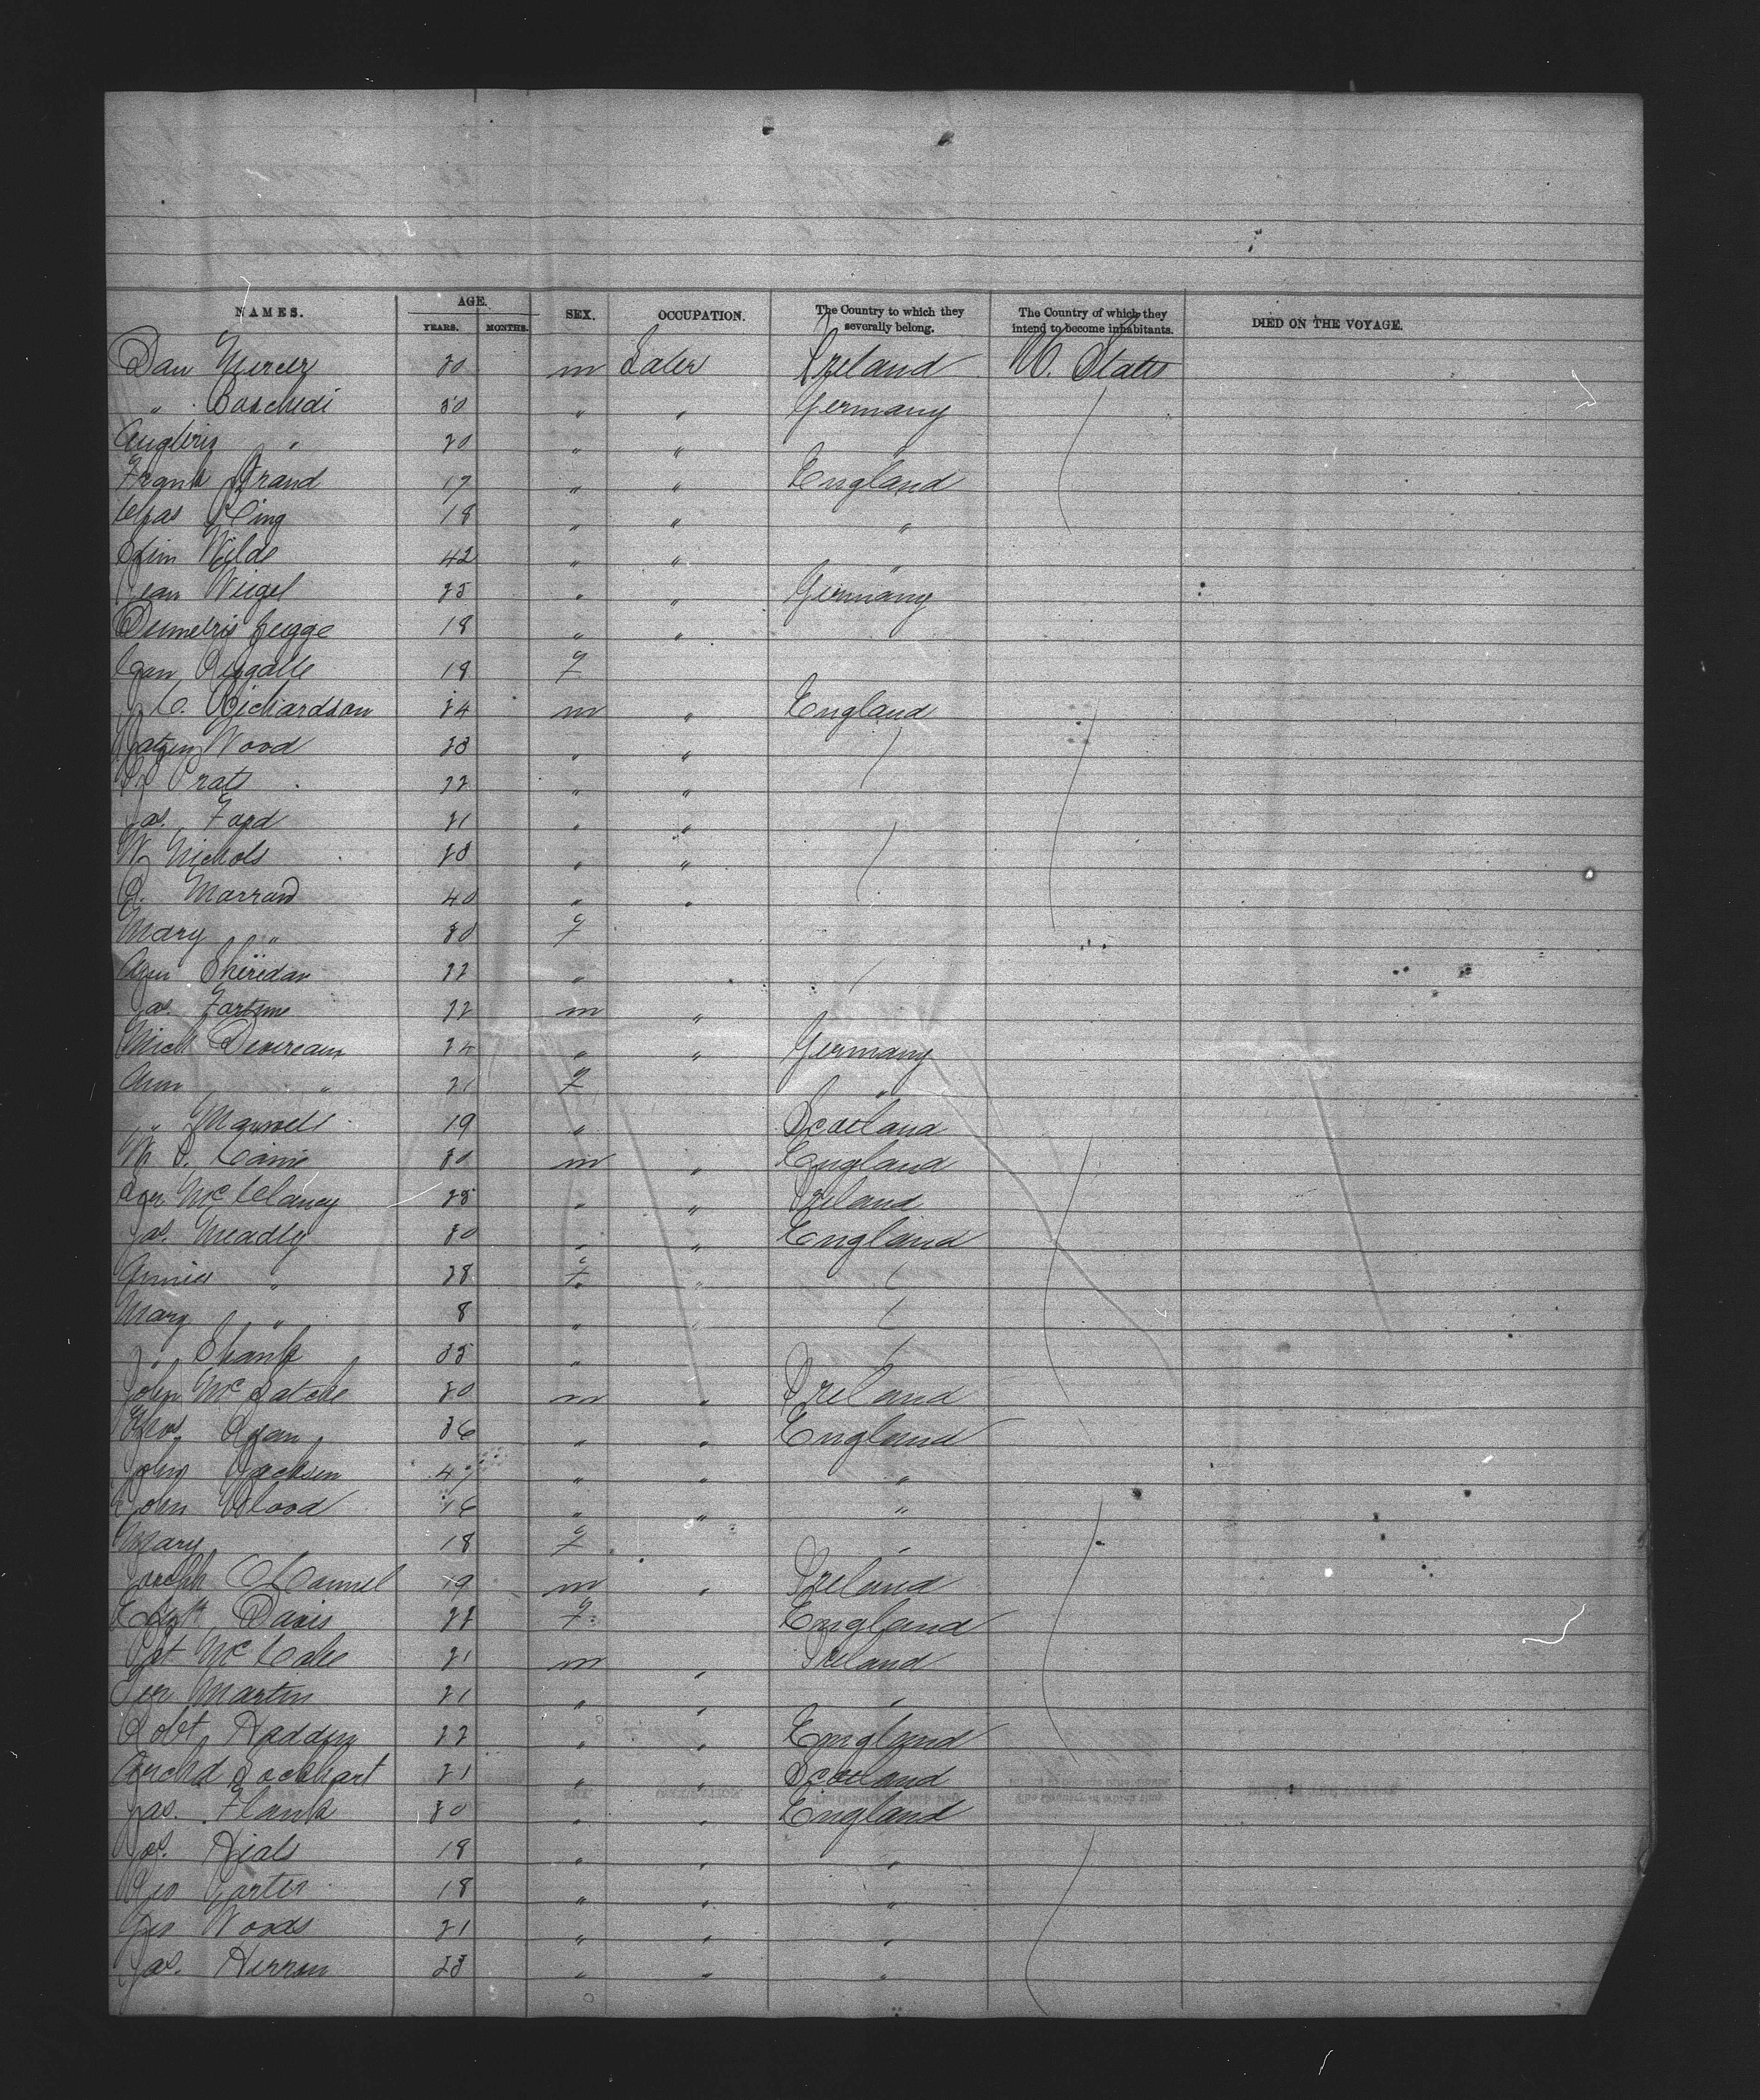 NAMES. AGE. YEARS. MONTHS. SEX. OCCUPATION. The Country to which they severally belong. The Country of which they intend to become inhabitants. DIED ON THE VOYAGE.
Dan Mercer 30 m Laber Ireland U. States
" 50 " " Germany
" 20 " " "
Frank Brand 17 " " England
Chas King 18 " " "
Jim Wilde 42 " " "
Jean Weigel 25 " " Germany
18 " "
18 f
C. Richardson 24 m " England
Wood 23 " "
22 " "
Jas. Ford 21 " "
W Nichols 20 " "
40 " "
Mary " 30 f
Sheridan 22 "
Jas. Fortune 22 m "
Mich Devereaux 24 " " Germany
Ann " 21 f "
" Maxwell 19 " Scotland
W S. Caine 30 m " England
Mc Clancy 25 " " Ireland
Jas. Meadly 30 " " England
Annie " 28 f "
Mary " 8 " "
" Shank 35 "
John Mc 20 m " Ireland
Thos Ryan 36 " " England
John Jackson 47 " " "
John Wood 16 " " "
Mary 18 f "
Joseph 19 m " Ireland
Elizth Davis 22 f England
Pat Mc Cabe 21 m " Ireland
Martin 21 " " "
Robt Hadden 22 " " England
Archd Lockhart 21 " " Scotland
Jas. Flank 30 " " England
Jos. 18 " " "
Geo Porter 18 " " "
Geo Woods 21 " " "
Jas. Herron 23 " " "